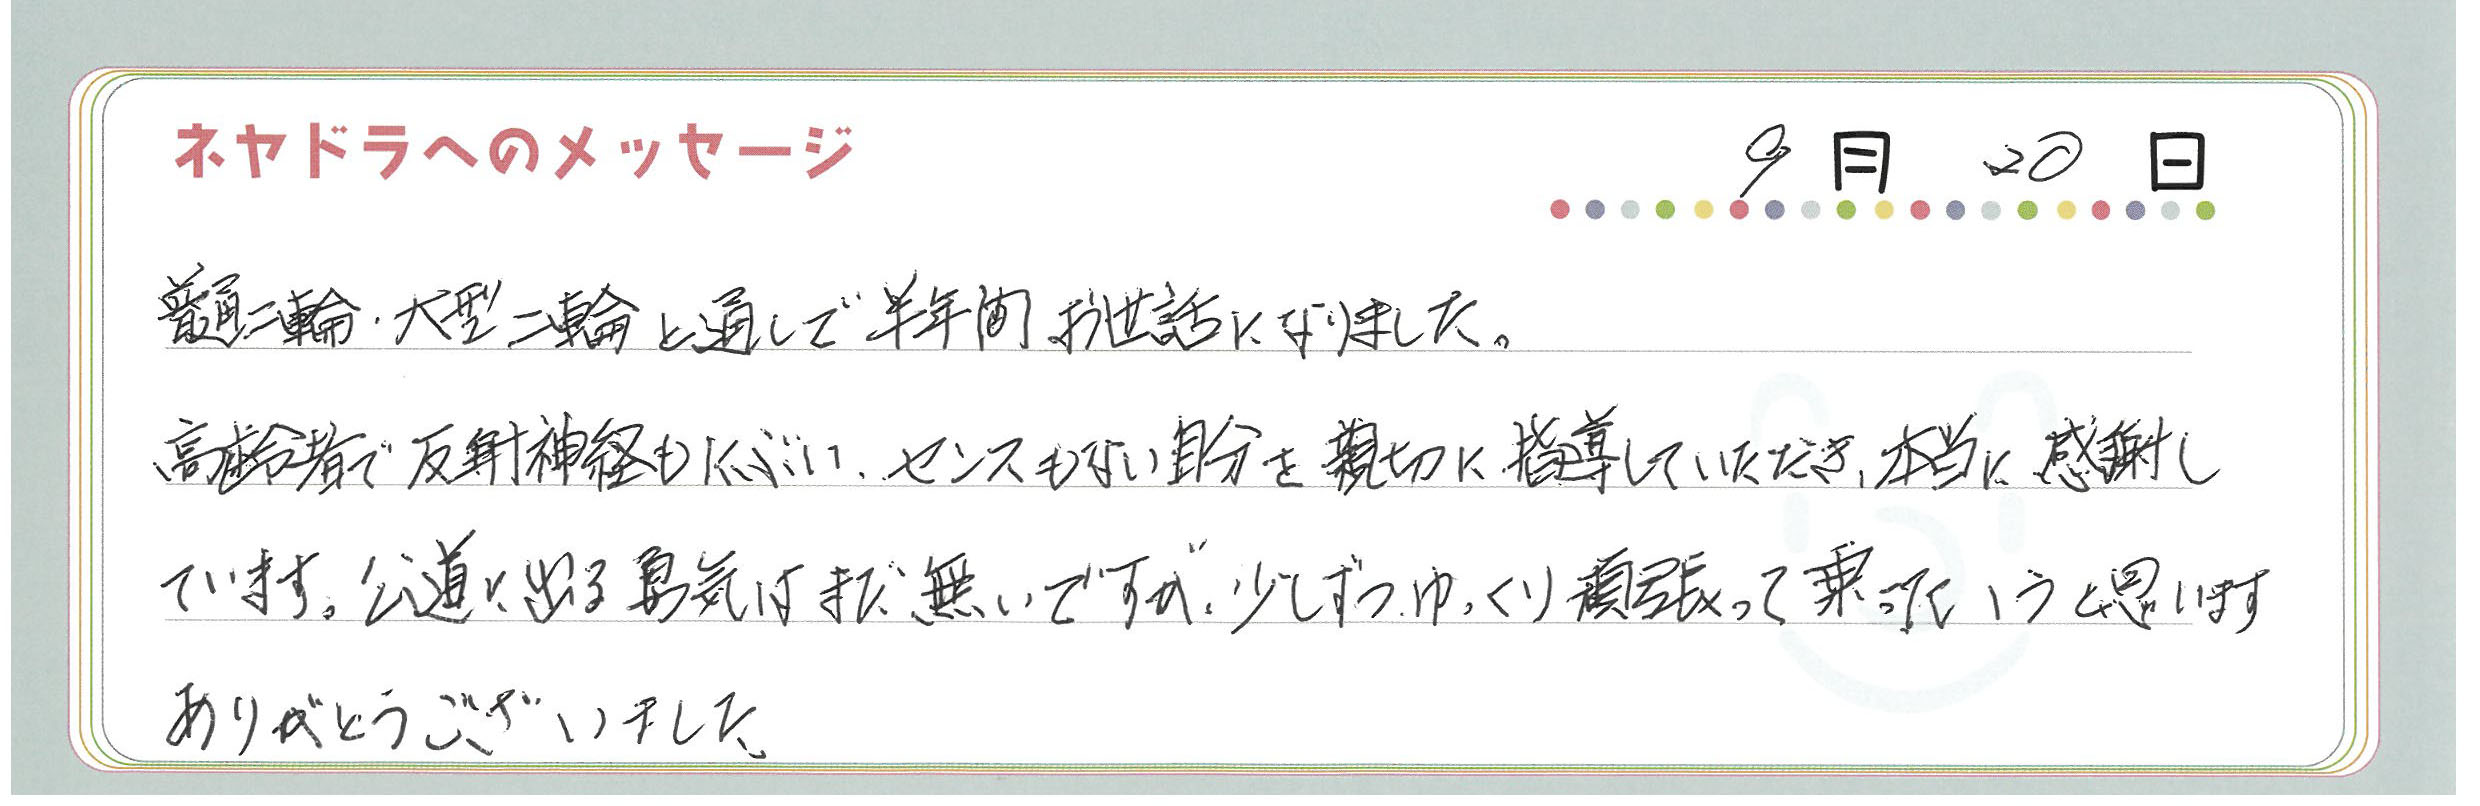 ネヤドラへのメッセージ
9月 20日
普通二輪・大型二輪と通して半年間お世話になりました。
高齢者で反射神経もにぶい、センスもない自分を親切に指導していただき、本当に感謝し
ています。公道に出る勇気はまだ無いですが、少しずつゆっくり頑張って乗っていこうと思います
ありがとうございました。